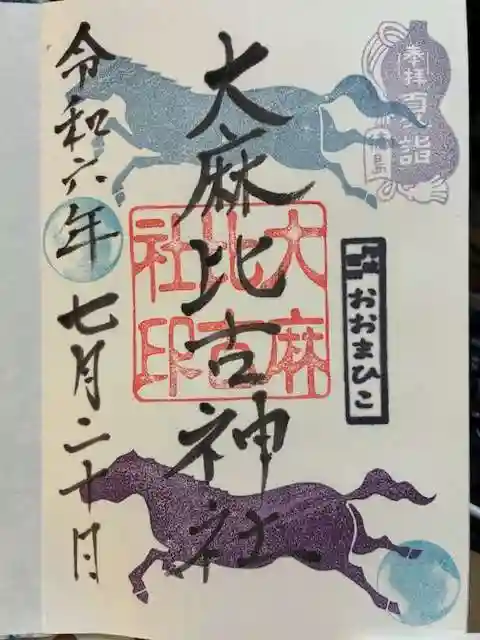 奉拝
夏詣
徳島
大麻比古神社
大麻
比古
社印
おおまひこ
令和六年七月二十日